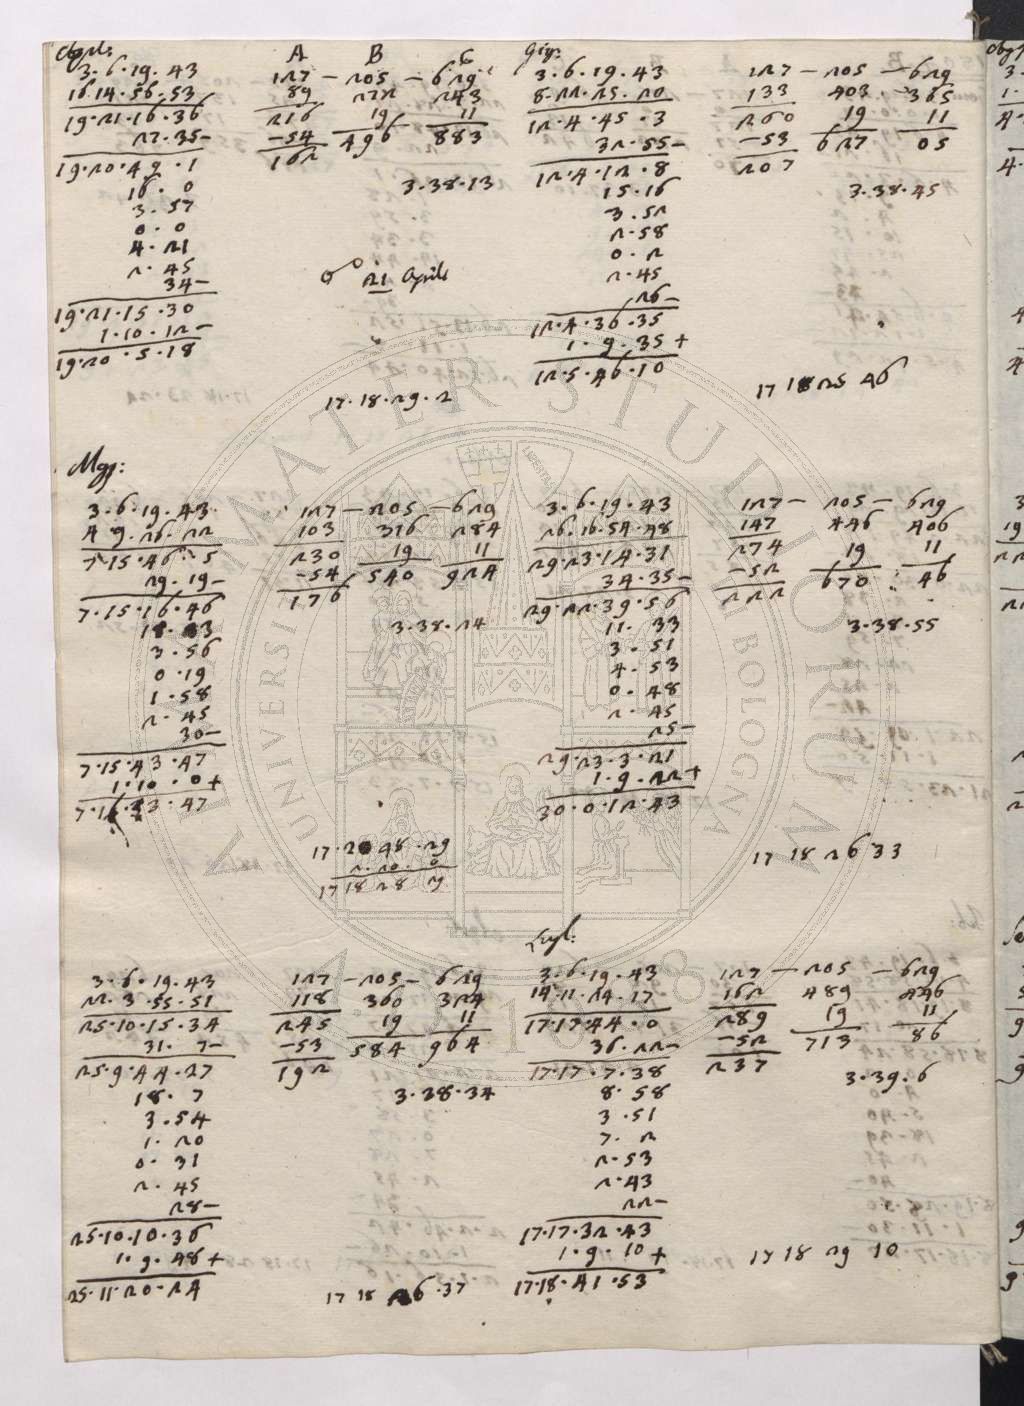 Aprl:
A B C
3.6.19.43 127 - 205 - 629
16.14.56.53 89 272 243
19.21.16.36 216 19 11
22.35- -54 496 883
19.20.49.1 162
16.0 3.38.13
3.57
0.0
4.21
2.45 ☍ 21 Aprile
34-
19.21.15.30
1.10.12-
19.20.5.18
17.18.29.2
Giu:
3.6.19.43 127 - 205 - 629
8.22.25.20 133 403 - 365
12.4.45.3 260 19 11
32.55- -53 627 05
12.4.12.8 207
15.16 3.38.45
3.52
2.58
0.2
2.45
26-
12.4.36.35
1.9.35+
12.5.46.10
17 18 25 46
Mgg:
3.6.19.43 127 - 205 - 629
4 9.26.22 103 316 284
7.15.46.5 230 19 11
29.19- -54 540 924
7.15.16.46 176
18.43 3.38.24
3.56
0.19
1.58
2.45
30-
7.15.43.47
1.10.0+
7.16.53.47
17.20 48.29
2.20.0
17 18 28 29
3.6.19.43 127 - 205 - 629
26.16.54.48 147 446 406
29.23.14.31 274 19 11
34.35- -52 670 46
29.22.39.56 222
11.33 3.38.55
3.51
4.53
0.48
2.45
25-
29.23.3.21
1.9.22+
30.0.12.43
17 18 26 33
3.6.19.43 127 - 205 - 629
22.3.55.51 118 360 324
25.10.15.34 245 19 11
31.7- -53 584 964
25.9.44.27 192
18.7 3.38.34
3.54
1.20
0.31
2.45
28-
25.10.10.36
1.9.48+
25.11.20.24
17 18 26.37
Lugl:
3.6.19.43 127 - 205 - 629
14.11.24.17 162 489 446
17.17.44.0 289 19 11
36.22- -52 713 86
17.17.7.38 237
8.58 3.39.6
3.51
7.2
2.53
2.43
22-
17.17.32.43
1.9.10+
17.18.41.53
17 18 29 10
ALMA MATER STUDIORUM
UNIVERSITÀ DI BOLOGNA
A.D. 1088